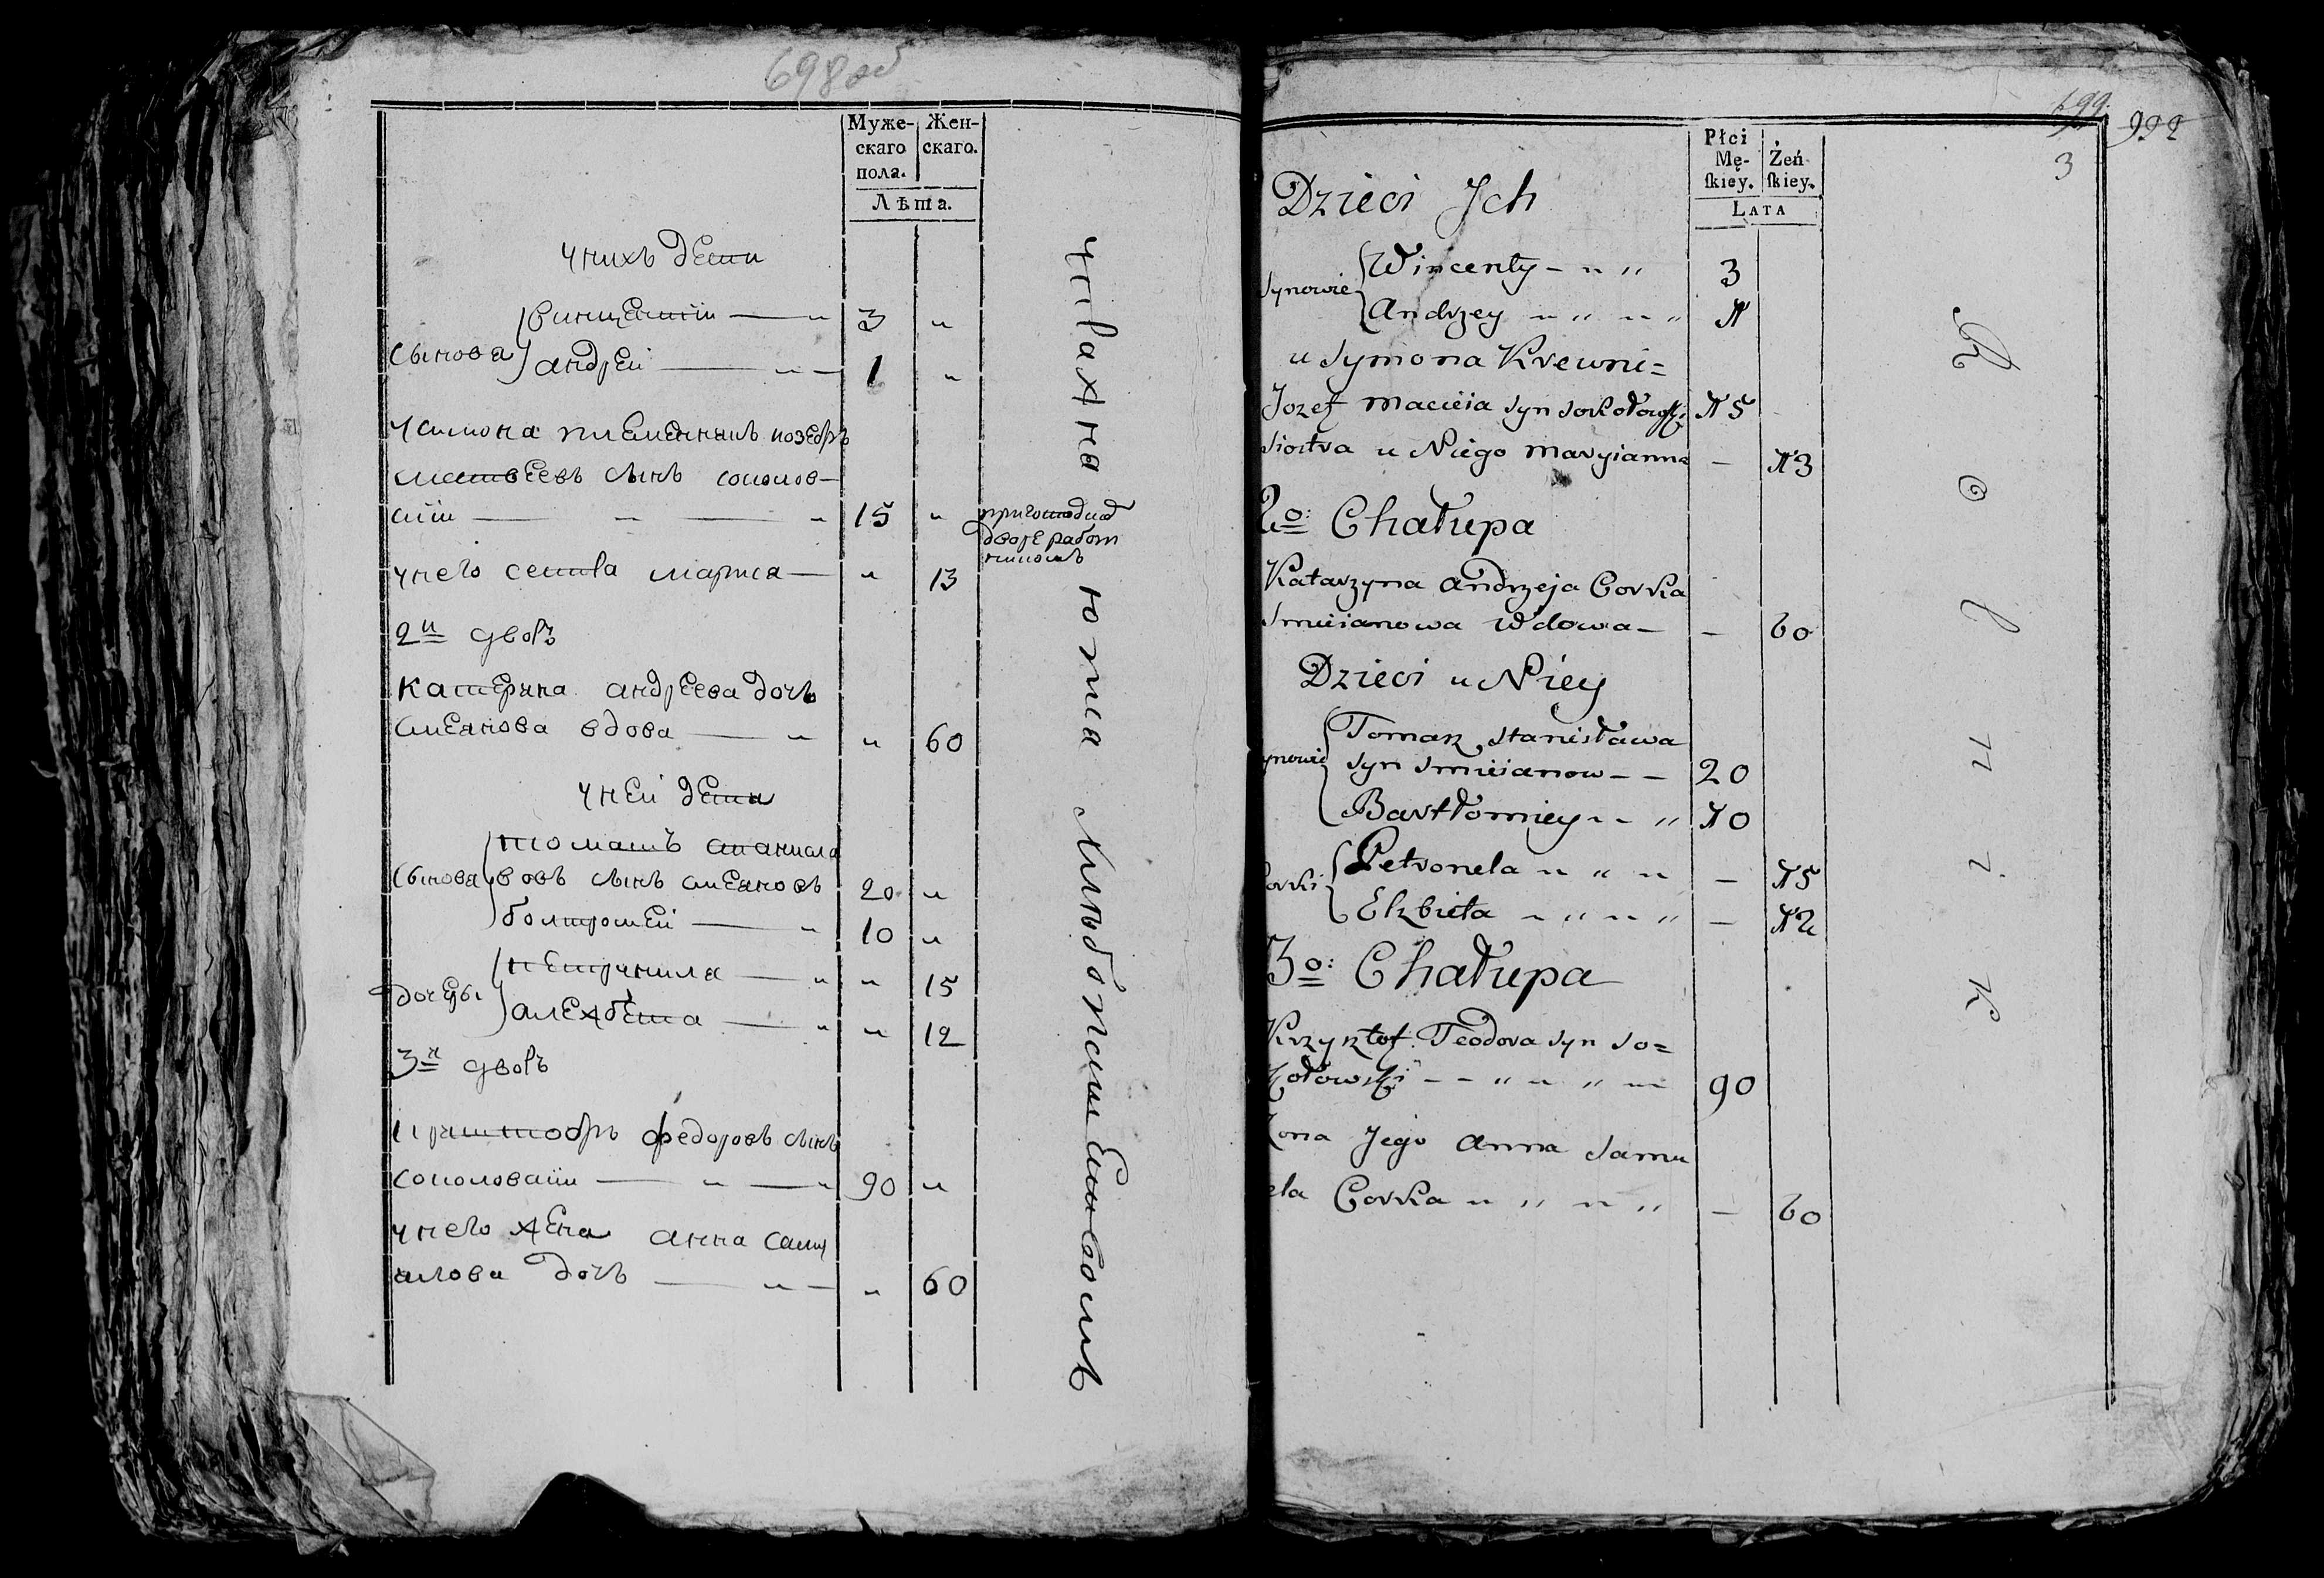 698 об
Муже-
скаго
пола.
Жен-
скаго.
Лѣта.
у нихъ дети
сынова
винцентiи — " 3 "
андреи — " — 1 "
у симона племенникъ иозефъ
матвеевъ сынъ соколов-
скiи — " — " 15 "
у него сестра марися — " 13
2й дворъ
катерина андреева дочь
смеянова вдова — " " 60
у неи дети
сынова
томашъ станисла
вовъ сынъ смеяновъ 20 "
болтромеи — " 10 "
дочеры
петрунила — " " 15
алежбета — " " 12
3й дворъ
криштофъ федоровъ сынъ
соколовскiи — " — " 90 "
у него жена анна саму
илова дочь — " — " 60
дворе работ
никомъ
699
992
3
Płci
Mę-
skiey.
Żeń
skiey.
LATA
Dzieci Ich
Synowie
Wincenty – " " 3
Andrzey " " " " 1
u Symona Krewni=
Jozef Macieia Syn Sokołowski 15
Siostra u Niego Maryianna – 13
2o: Chałupa
Katarzyna Andrzeja Corka
Smieianowa Wdowa – – 60
Dzieci u Niey
ynowie
Tomasz Stanisława
Syn Smieianow – – 20
Bartłomiey " – " 10
orki
Petronela " " " – 15
Elzbieta " " " " – 12
3o: Chałupa
Krzysztof Teodora Syn So=
kołowski – – " " " " 90
Zona Jego Anna Samu
ela Corka " " " " – 60
R o l n i k